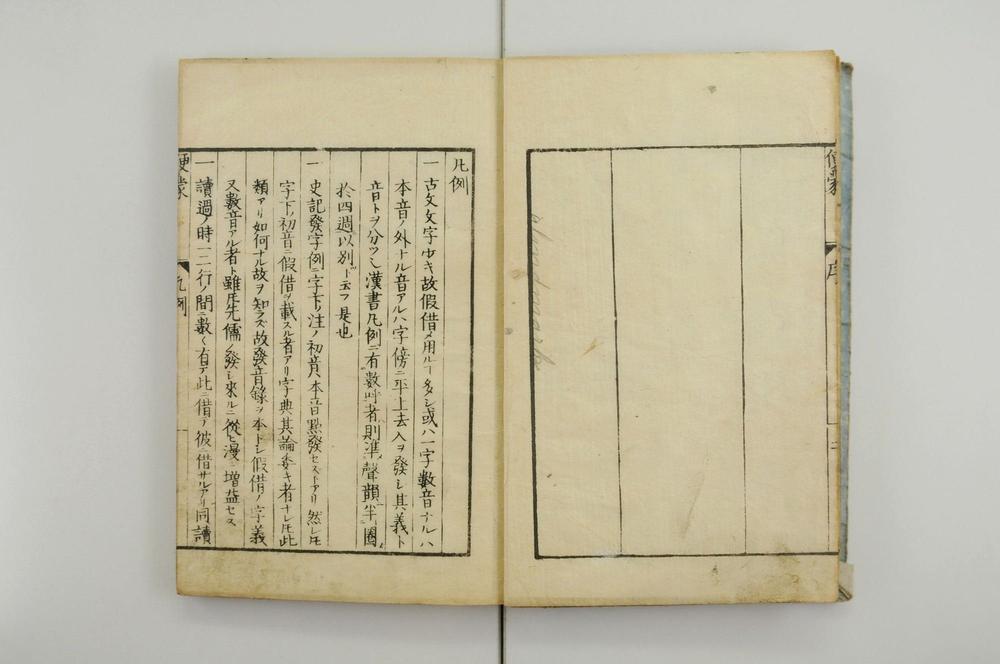 凡例
一 古文文字少キ故假借メ用ルヿ多シ或ハ一字數音ナルハ
本音ノ外ナル音アルハ字傍ニ平上去入ヲ發シ其義ト
音トヲ分ツ漢書凡例ニ有數音者則準聲韻半圈
於四週以別ト云フ是也
一 史記發字例ニ字下ノ注ノ初音本音點發セストアリ然レ𪜈
字下ノ初音ニ假借ヲ載スル者アリ字典其論委キ者ナレ𪜈此
類アリ如何ナル故ヲ知ラズ故發音錄ヲ本トシ假借ノ字義
又數音アル者ト雖𪜈先儒ノ發シ來ルニ從ヒ漫ニ增益セス
一 讀過ノ時一二行ノ間ニ數〻有テ此ニ借テ彼ニ借サルアリ同讀
便蒙 凡例
便蒙 序